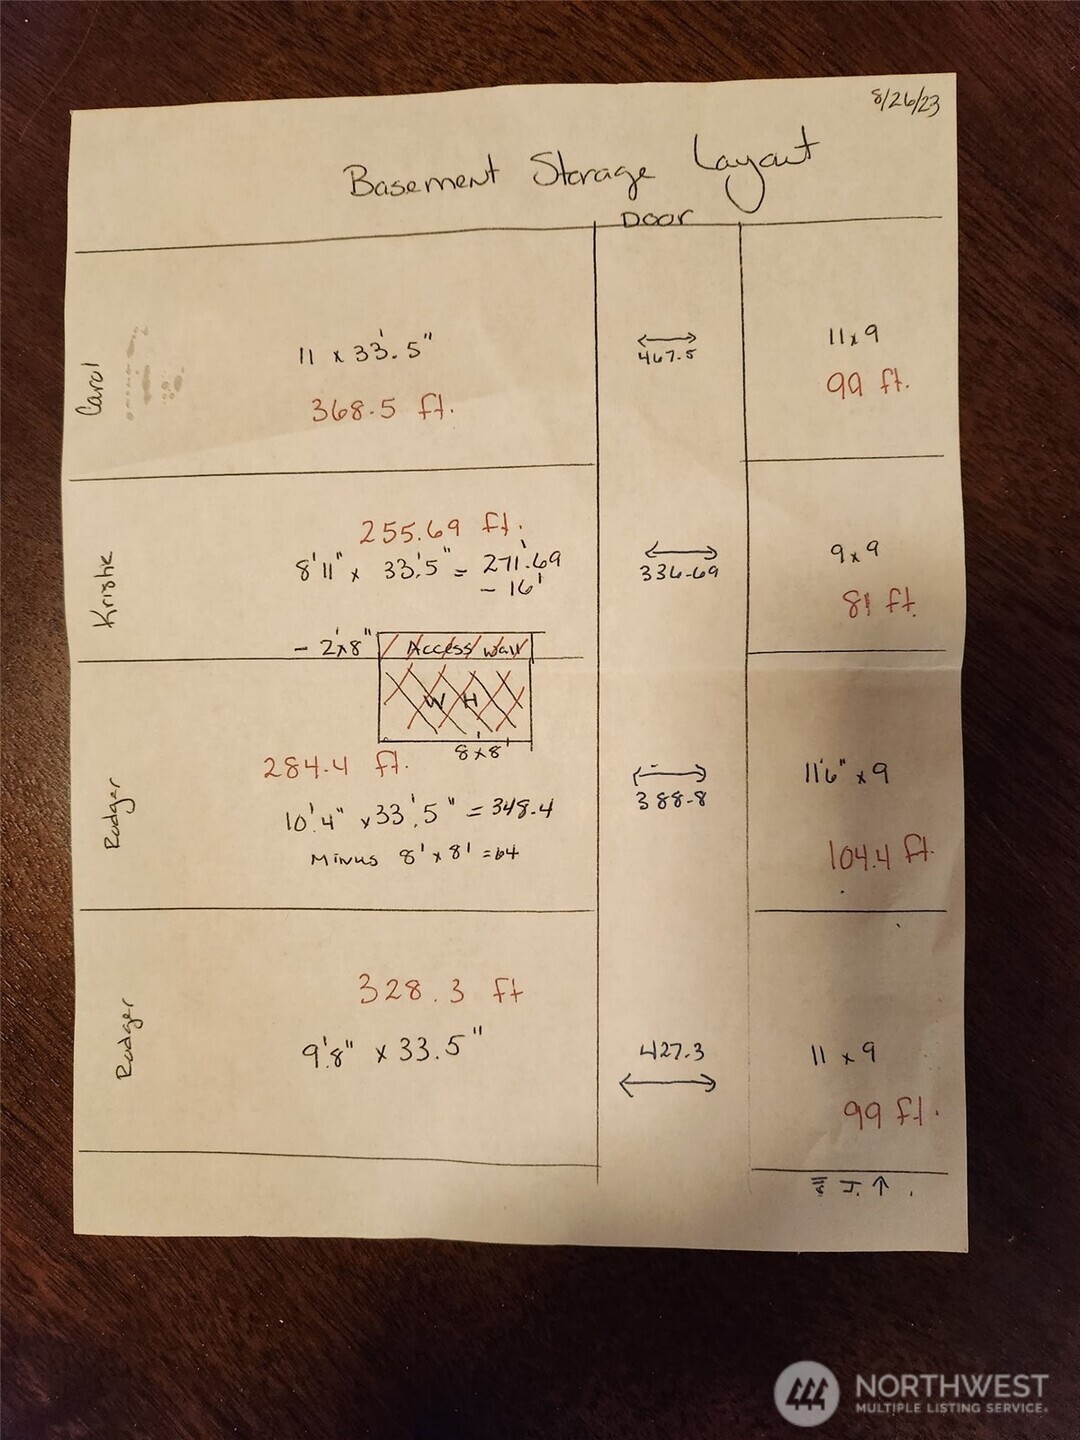 8/26/23
Basement Storage Layout
Door
Carol
11 x 33'.5"
368.5 ft.
467.5
11 x 9
99 ft.
Kristie
255.69 ft.
8'11" x 33'.5" = 271.69
- 16'
- 2'x8"
Access Wall
336.69
9 x 9
81 ft.
W H
8'x8'
Rodger
284.4 ft.
10'.4" x 33'.5" = 348.4
Minus 8' x 8' = 64
388.8
11'6" x 9
104.4 ft.
Rodger
328.3 ft
9'.8" x 33.5"
427.3
11 x 9
99 ft.
NORTHWEST
MULTIPLE LISTING SERVICE.